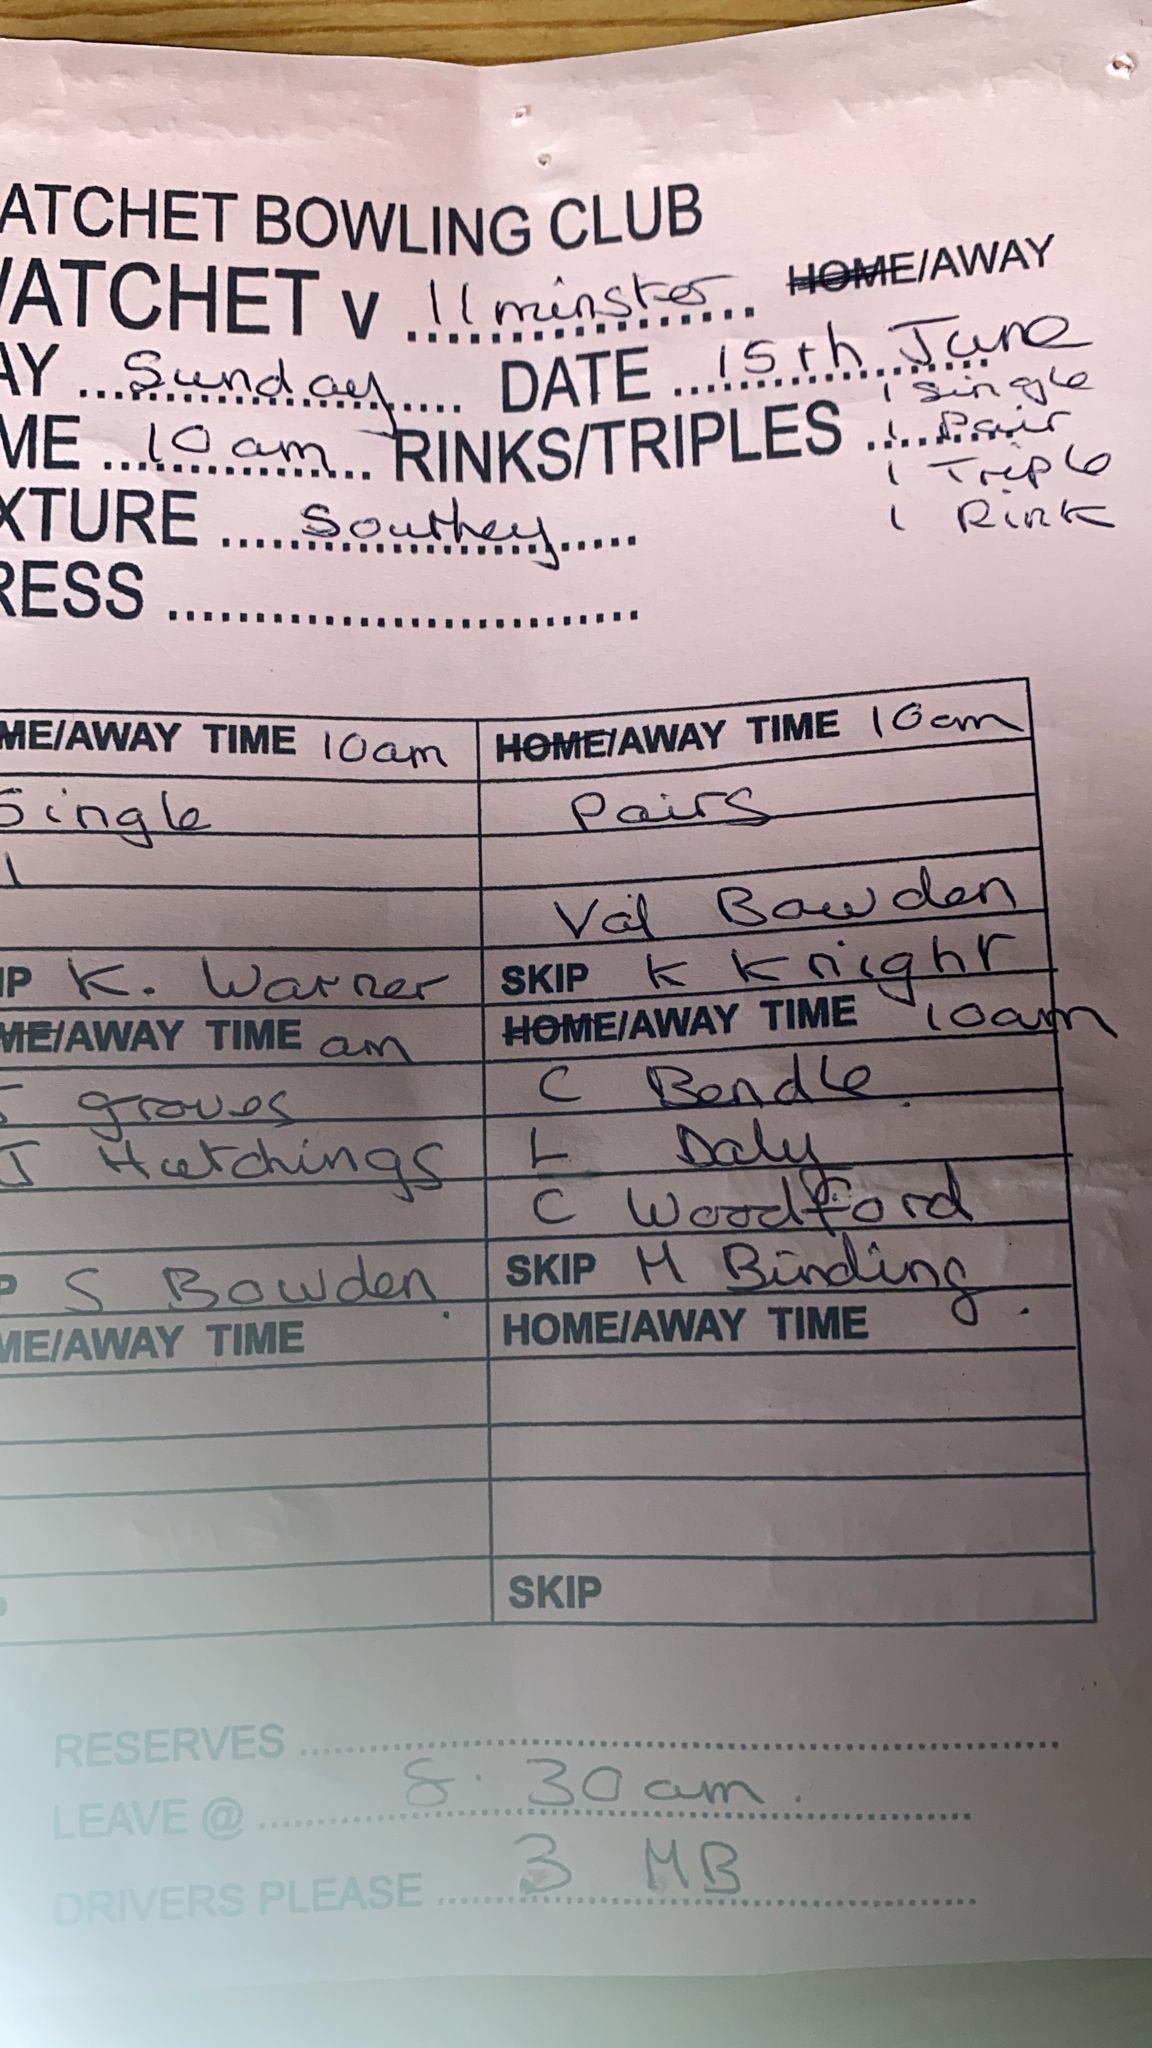 ATCHET BOWLING CLUB
WATCHET v Ilminster HOME/AWAY
AY Sunday DATE 15th June
ME 10am RINKS/TRIPLES 1 Single
1 Pair
1 Triple
1 Rink
XTURE Southey
RESS
ME/AWAY TIME 10am HOME/AWAY TIME 10am
Single Pairs
1
Val Bowden
IP K. Warner SKIP K Knight
ME/AWAY TIME am HOME/AWAY TIME 10am
groves C Bendle
J Hutchings L Daly
C Woodford
P S Bowden SKIP M Binding
ME/AWAY TIME HOME/AWAY TIME
SKIP
RESERVES
LEAVE @ 8.30am.
DRIVERS PLEASE 3 MB